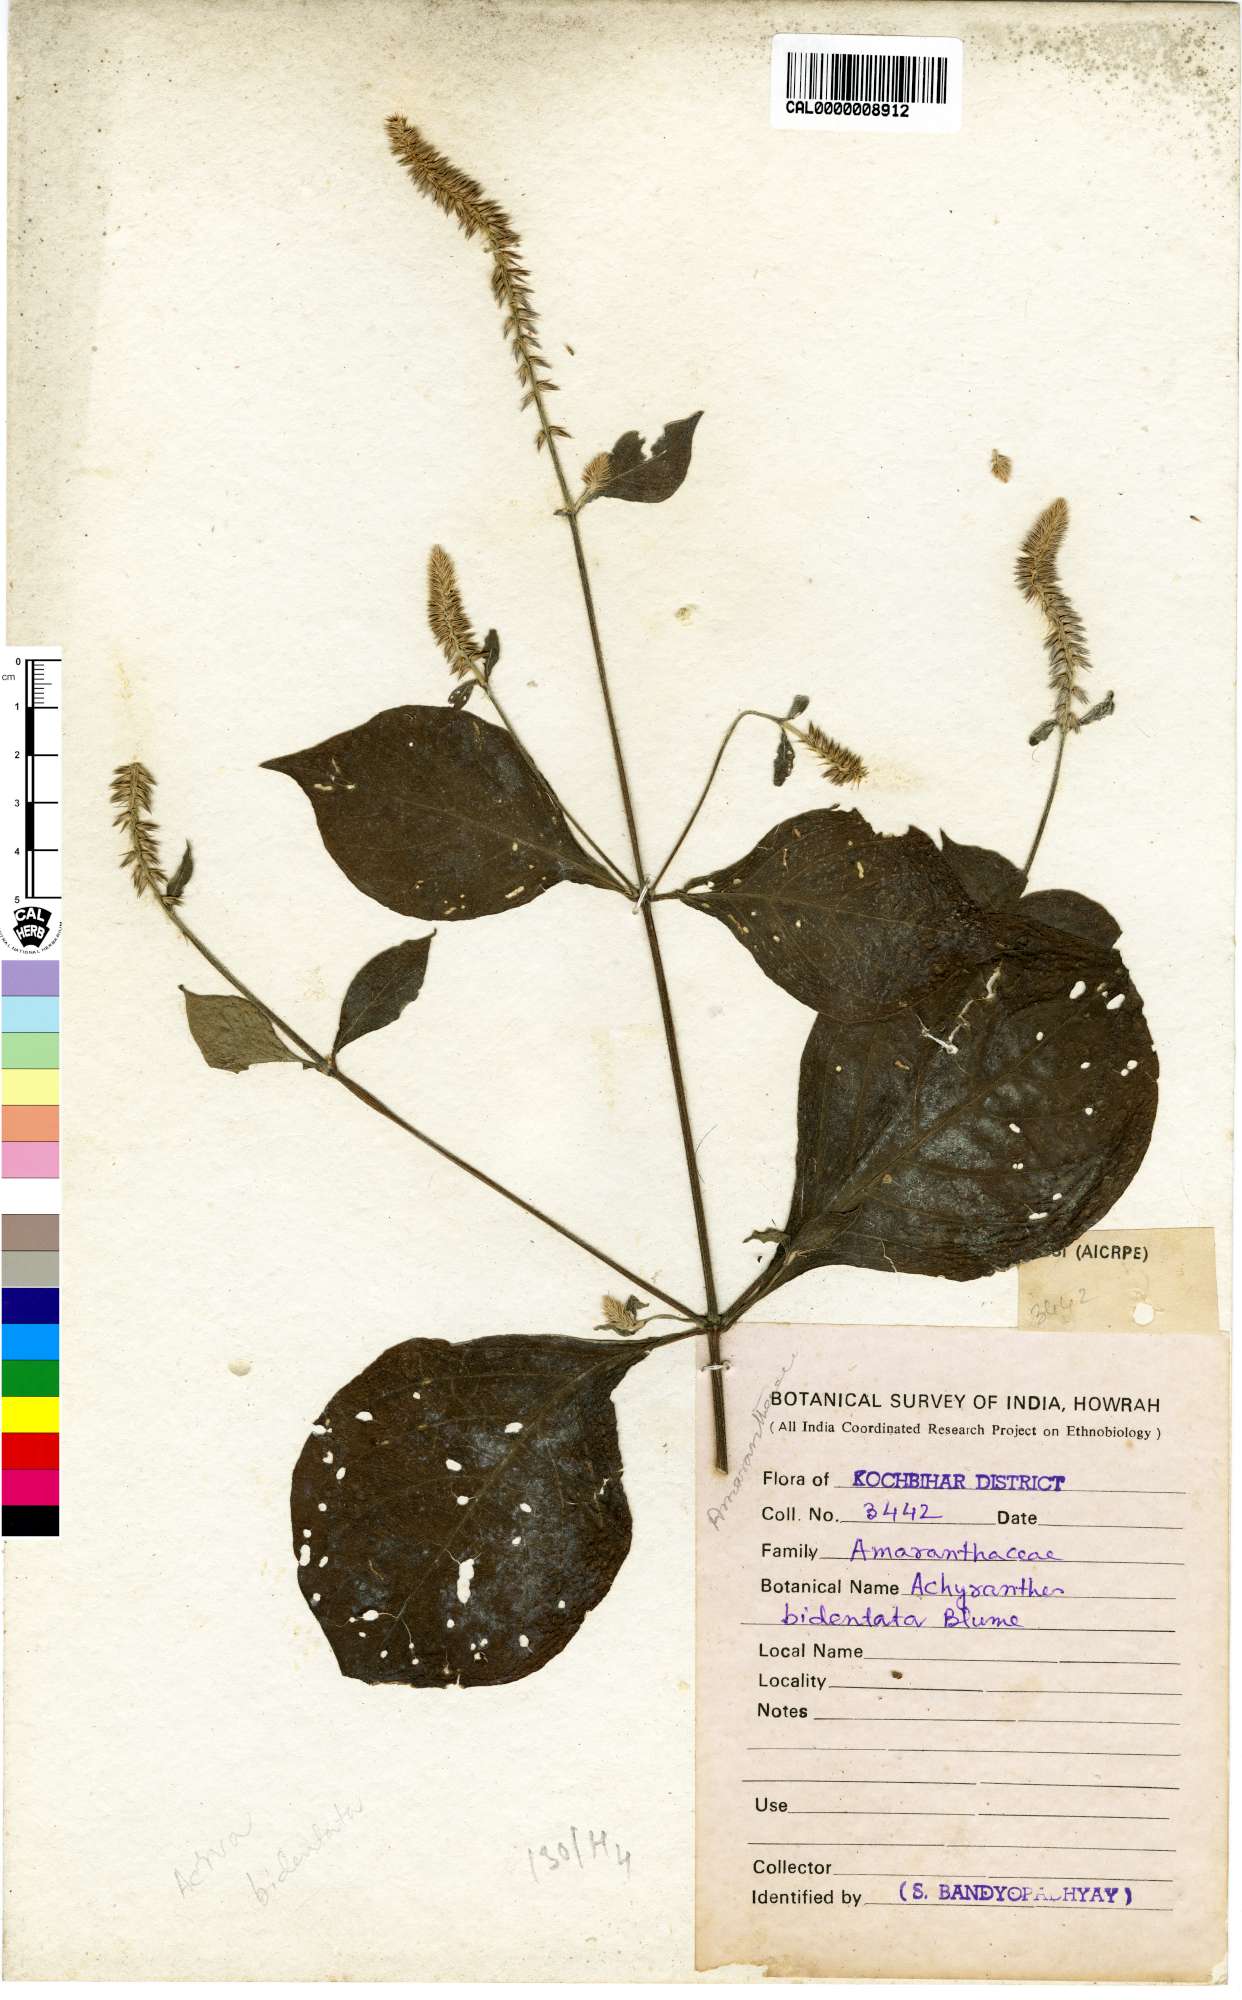 CAL0000008912
0
cm
1
2
3
4
5
CAL
HERB
(AICRPE)
3442
Amaranthaceae
BOTANICAL SURVEY OF INDIA, HOWRAH
(All India Coordinated Research Project on Ethnobiology)
Flora of KOCHBIHAR DISTRICT
Coll. No. 3442 Date
Family Amaranthaceae
Botanical Name Achyranthes
bidentata Blume
Local Name
Locality
Notes
Use
Collector
Identified by (S. BANDYOPADHYAY)
bidentata
130/H4